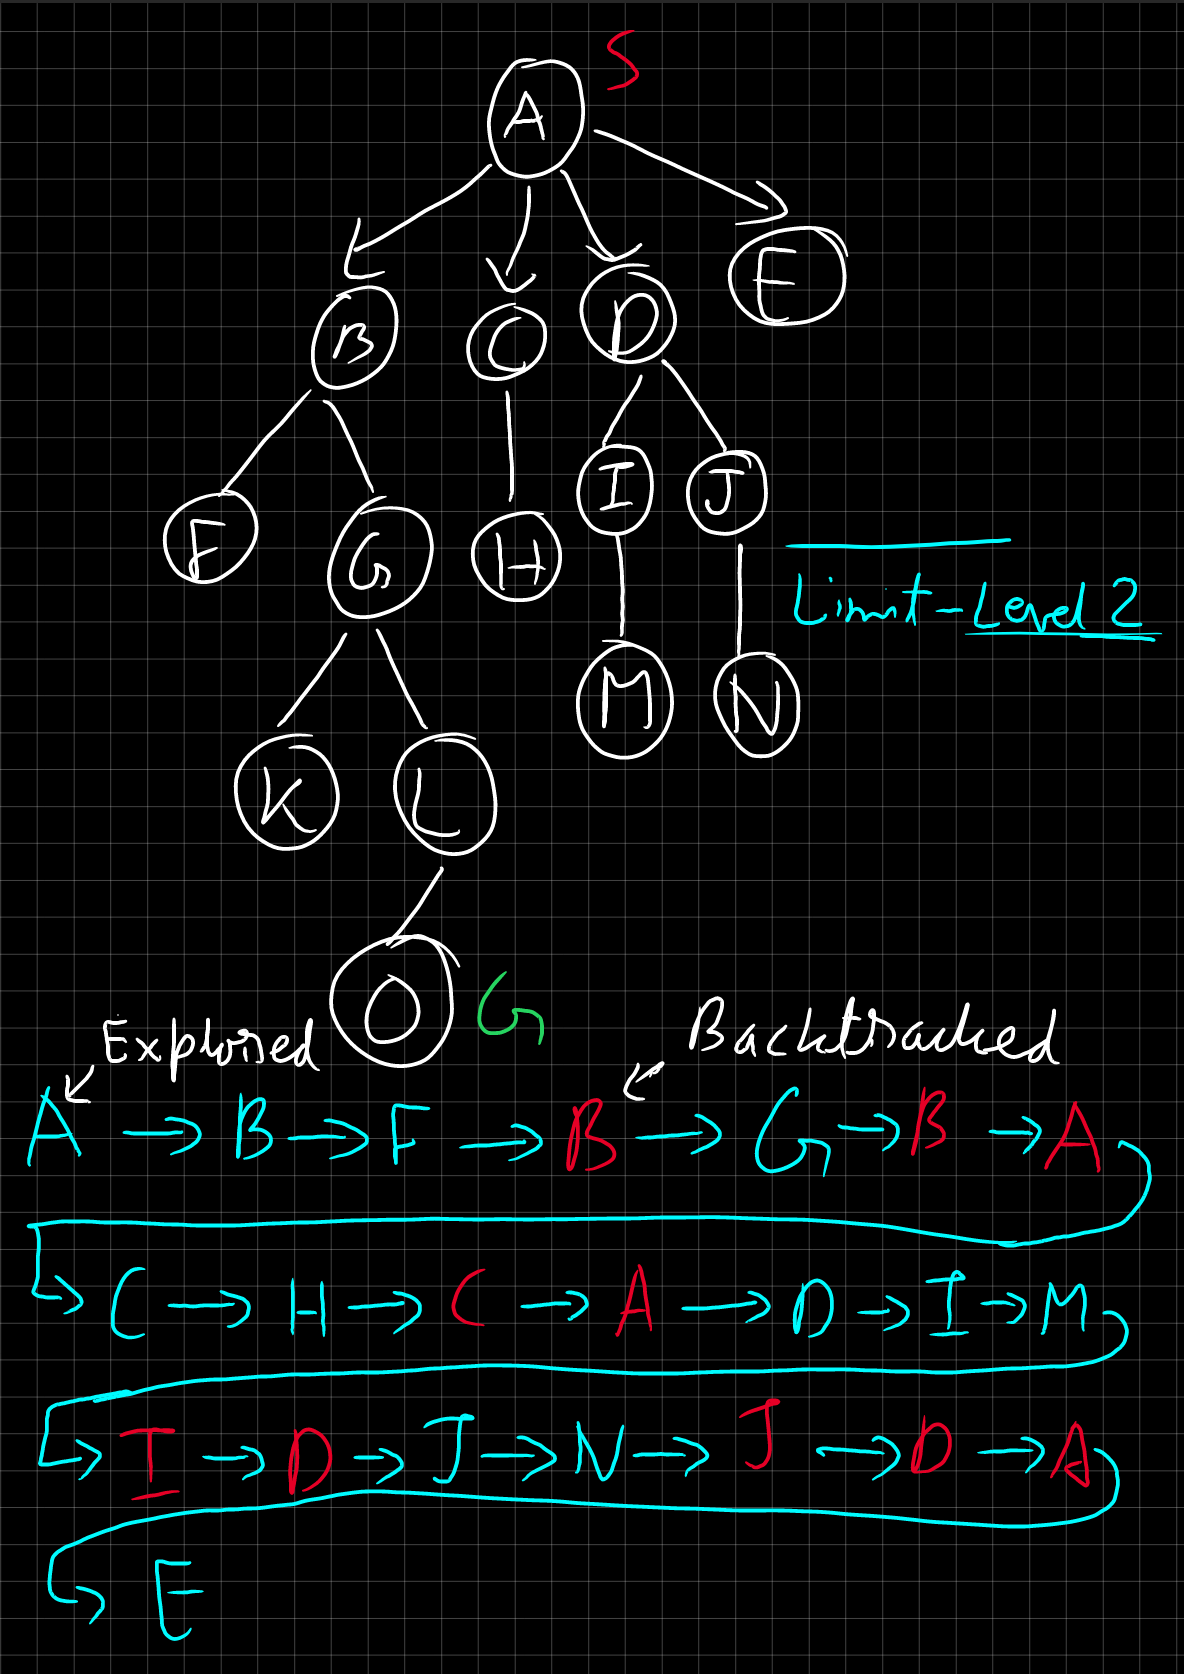 S
A
B C D E
F G H I J
Limit-Level 2
K L M N
O G
Explored Backtracked
A → B → F → B → G → B → A
↳ C → H → C → A → D → I → M
↳ I → D → J → N → J → D → A
↳ E